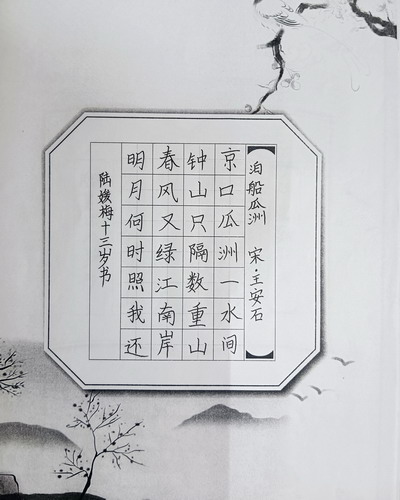 泊船瓜洲 宋·王安石
京口瓜洲一水间
钟山只隔数重山
春风又绿江南岸
明月何时照我还
陆媛梅十三岁书